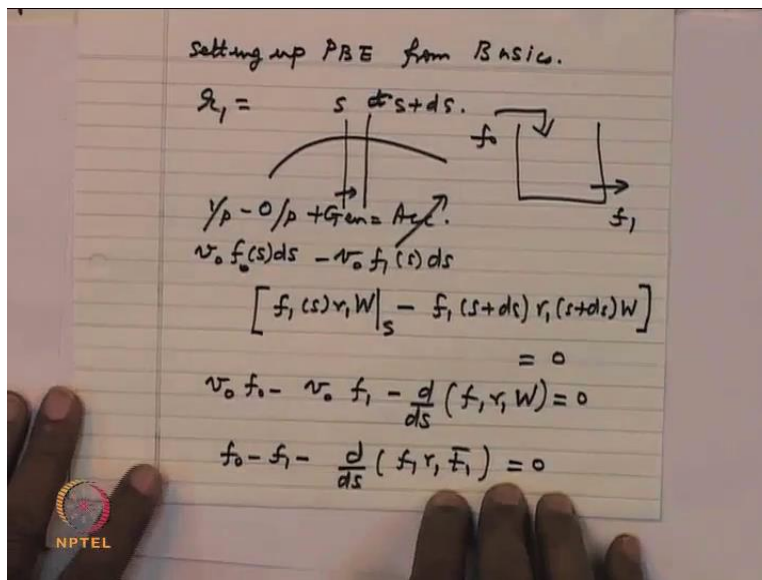 Setting up PBE from Basics.
r₁ = s s+ds.
f₀
f₁
I/p - O/p + Gen = Acc.
v₀ f₀(s)ds - v₀ f₁(s)ds
[ f₁(s) r₁ W|ₛ - f₁(s+ds) r₁(s+ds) W ]
= 0
v₀ f₀ - v₀ f₁ - d/ds (f₁ r₁ W) = 0
f₀ - f₁ - d/ds (f₁ r₁ t̄₁) = 0
NPTEL